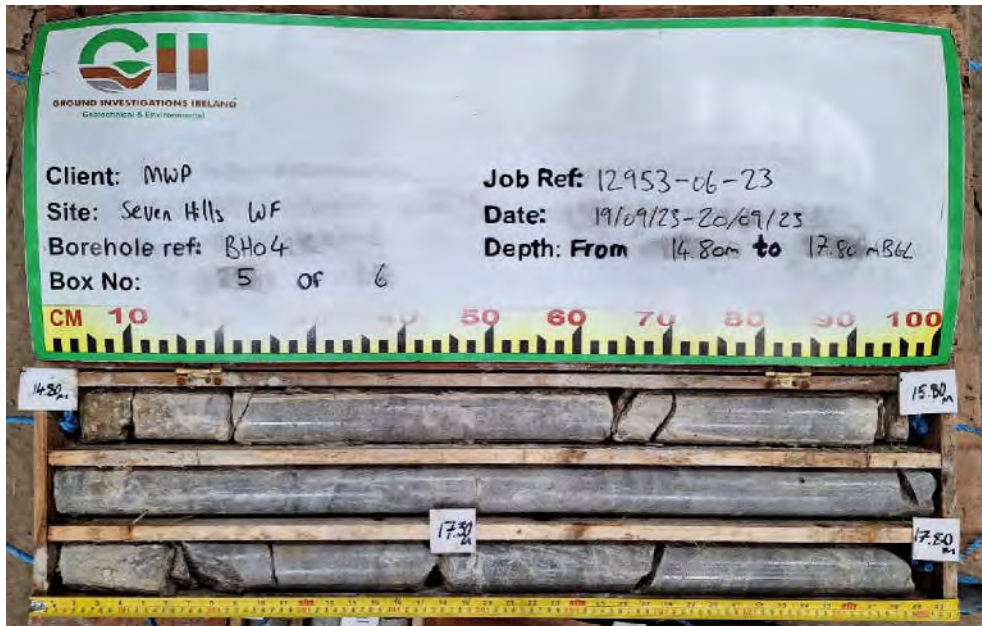 GII
GROUND INVESTIGATIONS IRELAND
Geotechnical & Environmental
Client: MWP
Site: Seven Hills WF
Borehole ref: BH04
Box No: 5 OF 6
Job Ref: 12953-06-23
Date: 19/09/23-20/09/23
Depth: From 14.80m to 17.80 mBGL
CM 10 40 50 60 70 80 90 100
14.80m
15.80m
17.30m
17.80m